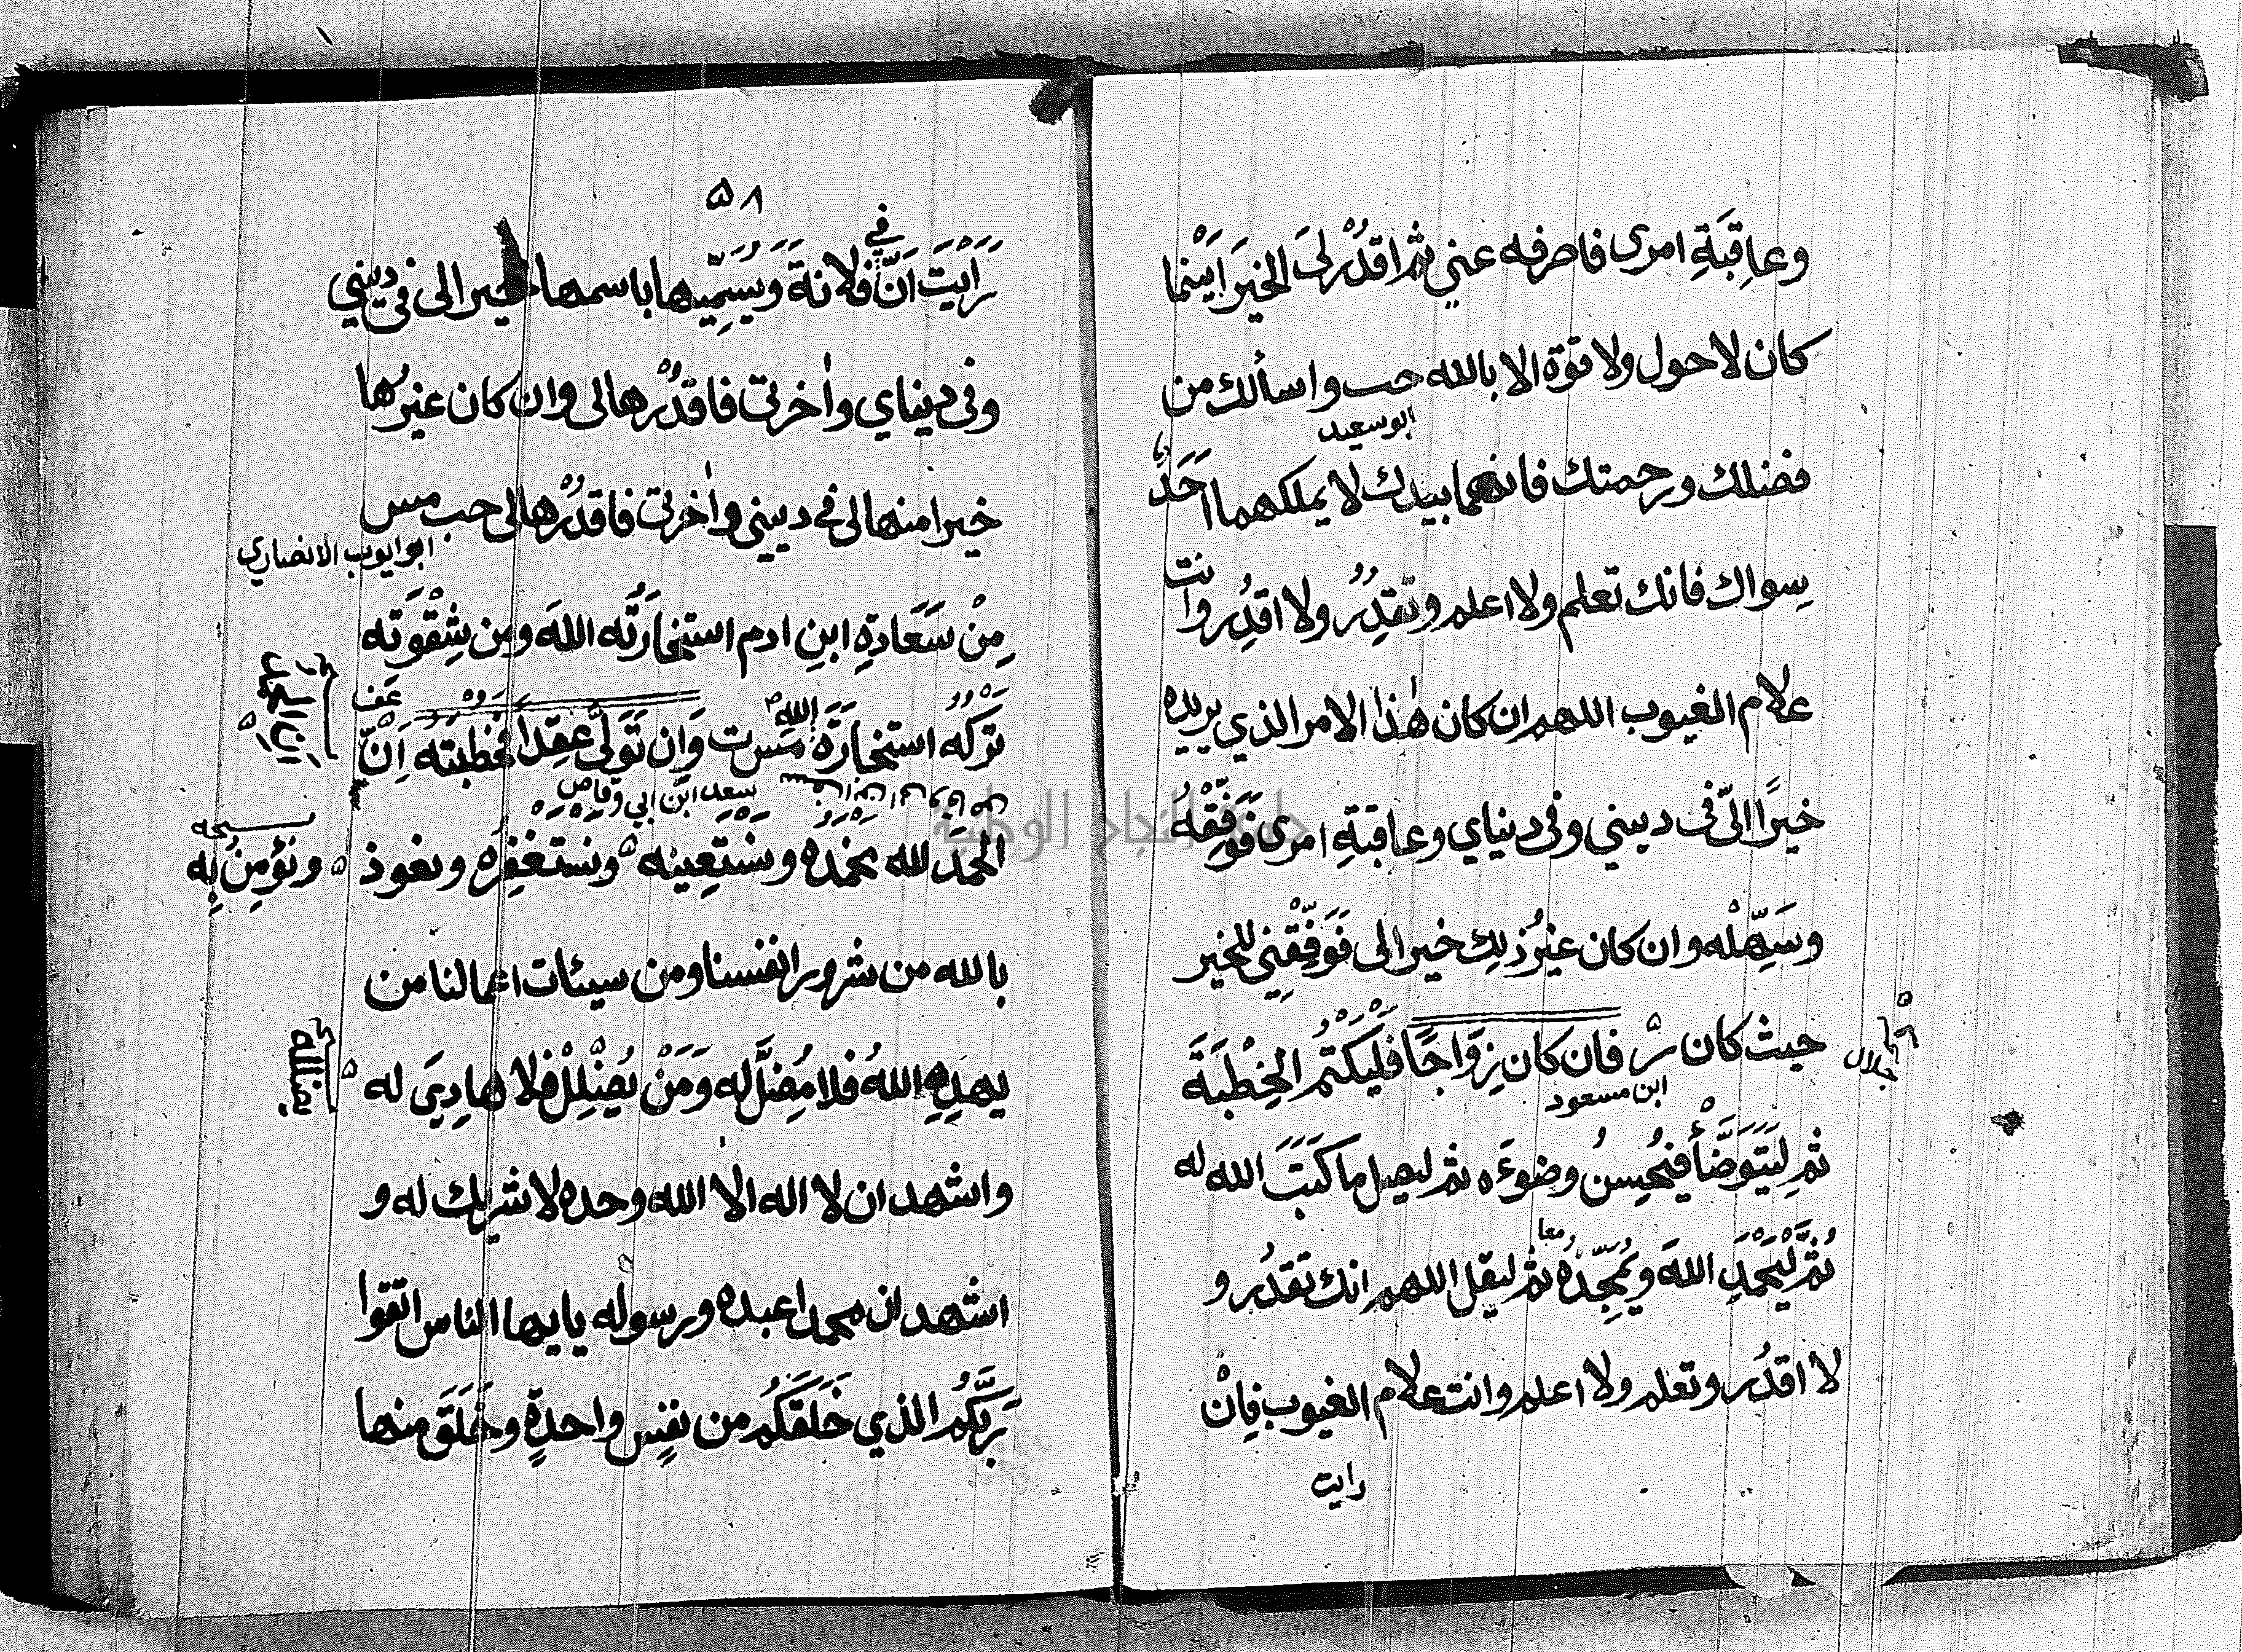 وعاقِبَةِ امرى فاصرفه عني ثم اقدُرْ لىَ الخيرَ اَيْنما
كان لا حول ولا قوة الا بالله حب واسألك من
ابو سعيد
فضلك ورحمتك فانهما بيدك لا يملكهما احَدٌ
سِواك فانك تعلم ولا اعلم وتقدِرُ ولا اقدِرُ وانت
علام الغيوب اللهم ان كان هٰذا الامر الذي يريده
خيرًا لىّ فى ديني وفى دنياي وعاقبةِ امرى فَوَفِّقْهُ
وسَهِّلْه وان كان غيرُ ذلِك خيرا لى فَوَفِّقْنِي للخير
حيث كان فان كان زِوَاجًا فَلْيَكْتُمِ الخِطْبَةَ
ابن مسعود
ثم لِيَتَوَضَّأْ فيُحْسِنُ وضوءَه ثم ليصل ما كَتَبَ الله له
معا
ثُمَّ لْيَحْمَدِ اللهَ ويُمَجِّدْهُ ثم ليقل اللهم انك تقدُر و
لا اقدُر وتعلم ولا اعلم وانت علام الغيوب فاِنْ
رايت
٥٨
في
رَاَيْتَ اَنَّ فلانةَ ويُسَمِّيها باسمها خيرا لى فى ديني
وفى دنياي واٰخرتى فاقدُرْها لى وان كان غيرُها
خيرا منها لى فى ديني واٰخرتى فاقدُرْها لى حب مس
ابو ايوب الانصاري
مِنْ سَعَادَةِ ابنِ ادم استخارَتُه اللهَ ومن شِقْوَتِه
تَرْكُه استخارَةَ الله مس ت وَاِن تَوَلَّى عَقِدًا فخطبته اِنّ
سعد ابن ابي وقاص
الحمدَ لله نحمَدُه ونستَعِينه ونستغفِرُه ونعوذ
ونؤمِنُ بِه
بالله من شرور انفسنا ومن سيئات اعمالنا من
يهدِهِ اللهُ فلا مُضِلَّ له ومَنْ يُضْلِلْ فلا هادِيَ له
واشهد ان لا اله الا الله وحده لا شريك له و
اشهد ان محمدا عبده ورسوله يايها الناس اتقوا
رَبَّكُم الذي خَلَقَكُم من نفسٍ واحدةٍ وخَلَقَ منها